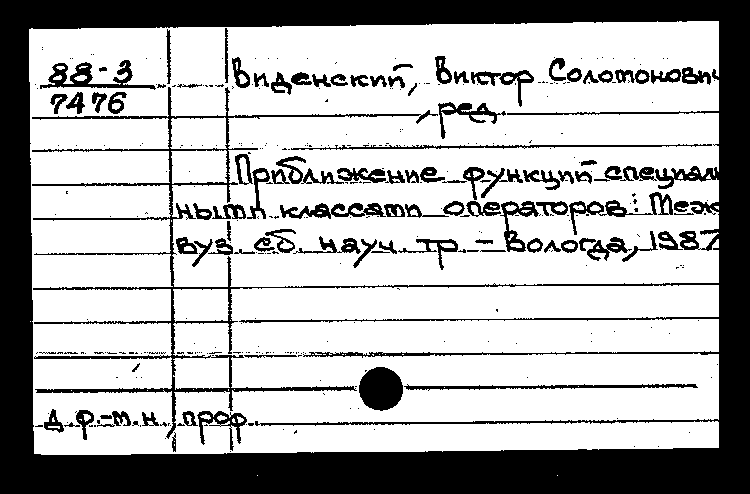 88-3
7476
Виденский, Виктор Соломонович
, ред.
Приближение функций специаль
ными классами операторов: Меж
вуз. сб. науч. тр. - Вологда, 1987
д.ф.-м.н., проф.